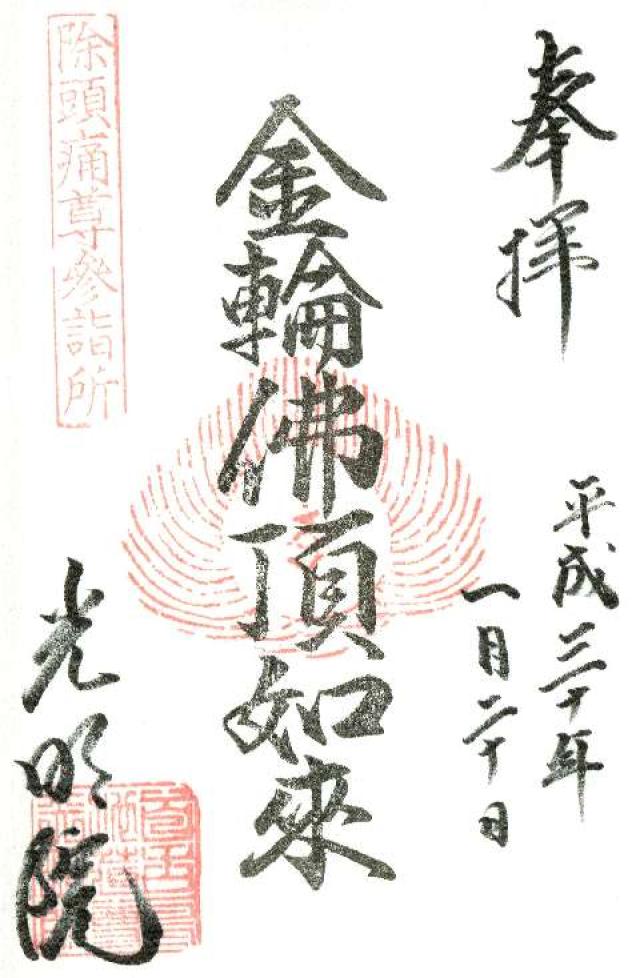 奉拝
平成三十年
一月二十日
金輪佛頂如來
除頭痛尊參詣所
光明院